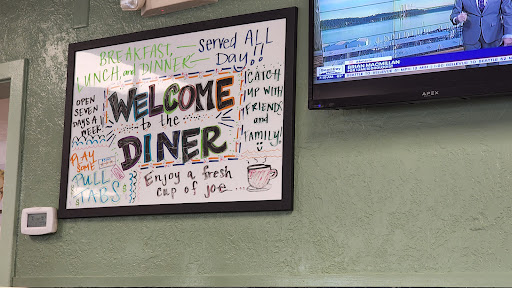 BREAKFAST, — SERVED ALL
LUNCH, and DINNER — DAY!!
OPEN
SEVEN
DAYS A
WEEK
WELCOME
to the
DINER
CATCH
UP WITH
FRIENDS
and
FAMILY!
PLAY
SOME
PULL
TABS
Enjoy a fresh
cup of joe
BRIAN MACMILLAN
APEX